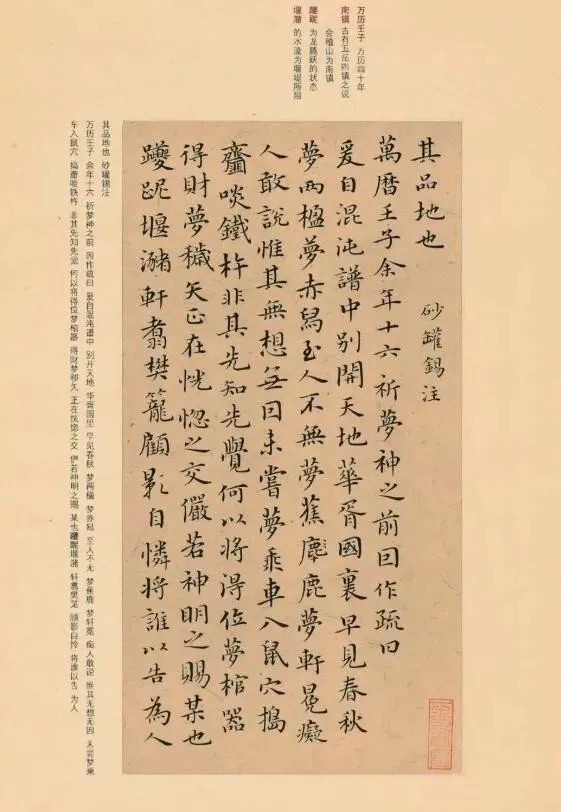 万历壬子 万历四十年
南镇 古有五岳四镇之说
会稽山为南镇
躨跜 为龙腾跃的状态
堰潴 的水流为堰堤所阻
其品地也 砂罐錫注
萬曆壬子余年十六祈夢神之前因作疏曰
爰自混沌譜中別開天地華胥國裏早見春秋
夢兩楹夢赤舄至人不無夢蕉麈鹿夢軒冕癡
人敢說惟其無想無因未嘗夢乘車入鼠穴搗
齏啖鐵杵非其先知先覺何以將得位夢棺器
得財夢穢矢正在恍惚之交儼若神明之賜某也
躨跜堰潴軒翥樊籠顧影自憐將誰以告為人
其品地也 砂罐锡注
万历壬子 余年十六 祈梦神之前 因作疏曰 爰自混沌谱中 别开天地 华胥国里 早见春秋 梦两楹 梦赤舄 至人不无 梦蕉鹿 梦轩冕 痴人敢说 惟其无想无因 未尝梦乘
车入鼠穴 捣齑啖铁杵 非其先知先觉 何以将得位梦棺器 得财梦秽矢 正在恍惚之交 俨若神明之赐 某也躨跜堰潴 轩翥樊笼 顾影自怜 将谁以告 为人